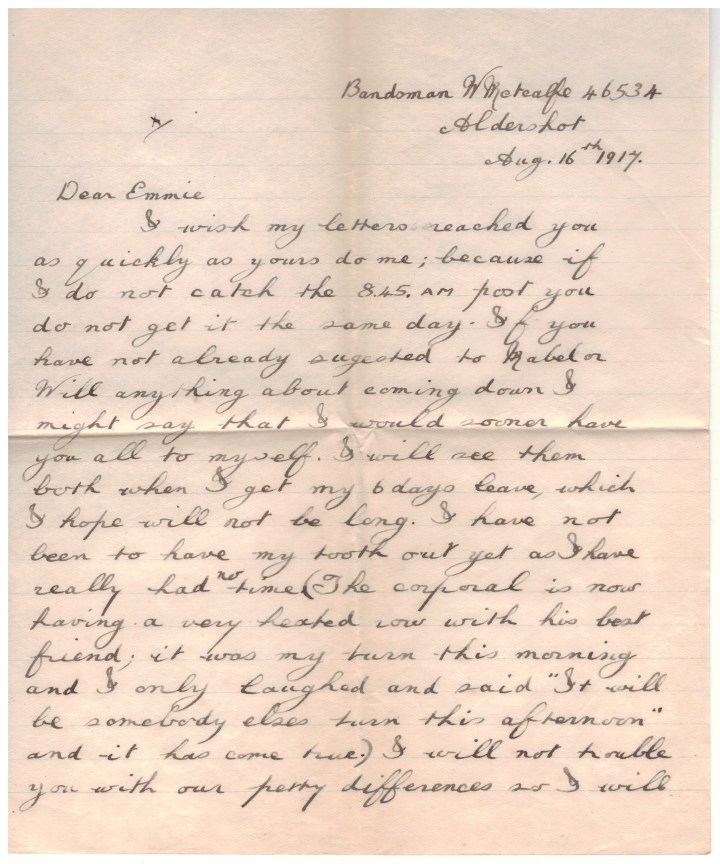 Bandsman W Metcalfe 46534
Aldershot
Aug. 16th 1917.
Dear Emmie
I wish my letters reached you
as quickly as yours do me; because if
I do not catch the 8.45. AM post you
do not get it the same day. If you
have not already sugested to Mabel or
Will anything about coming down I
might say that I would sooner have
you all to myself. I will see them
both when I get my 6 days leave, which
I hope will not be long. I have not
been to have my tooth out yet as I have
really had no time. (The corporal is now
having a very heated row with his best
friend; it was my turn this morning
and I only laughed and said "It will
be somebody elses turn this afternoon"
and it has come true.) I will not trouble
you with our petty differences so I will